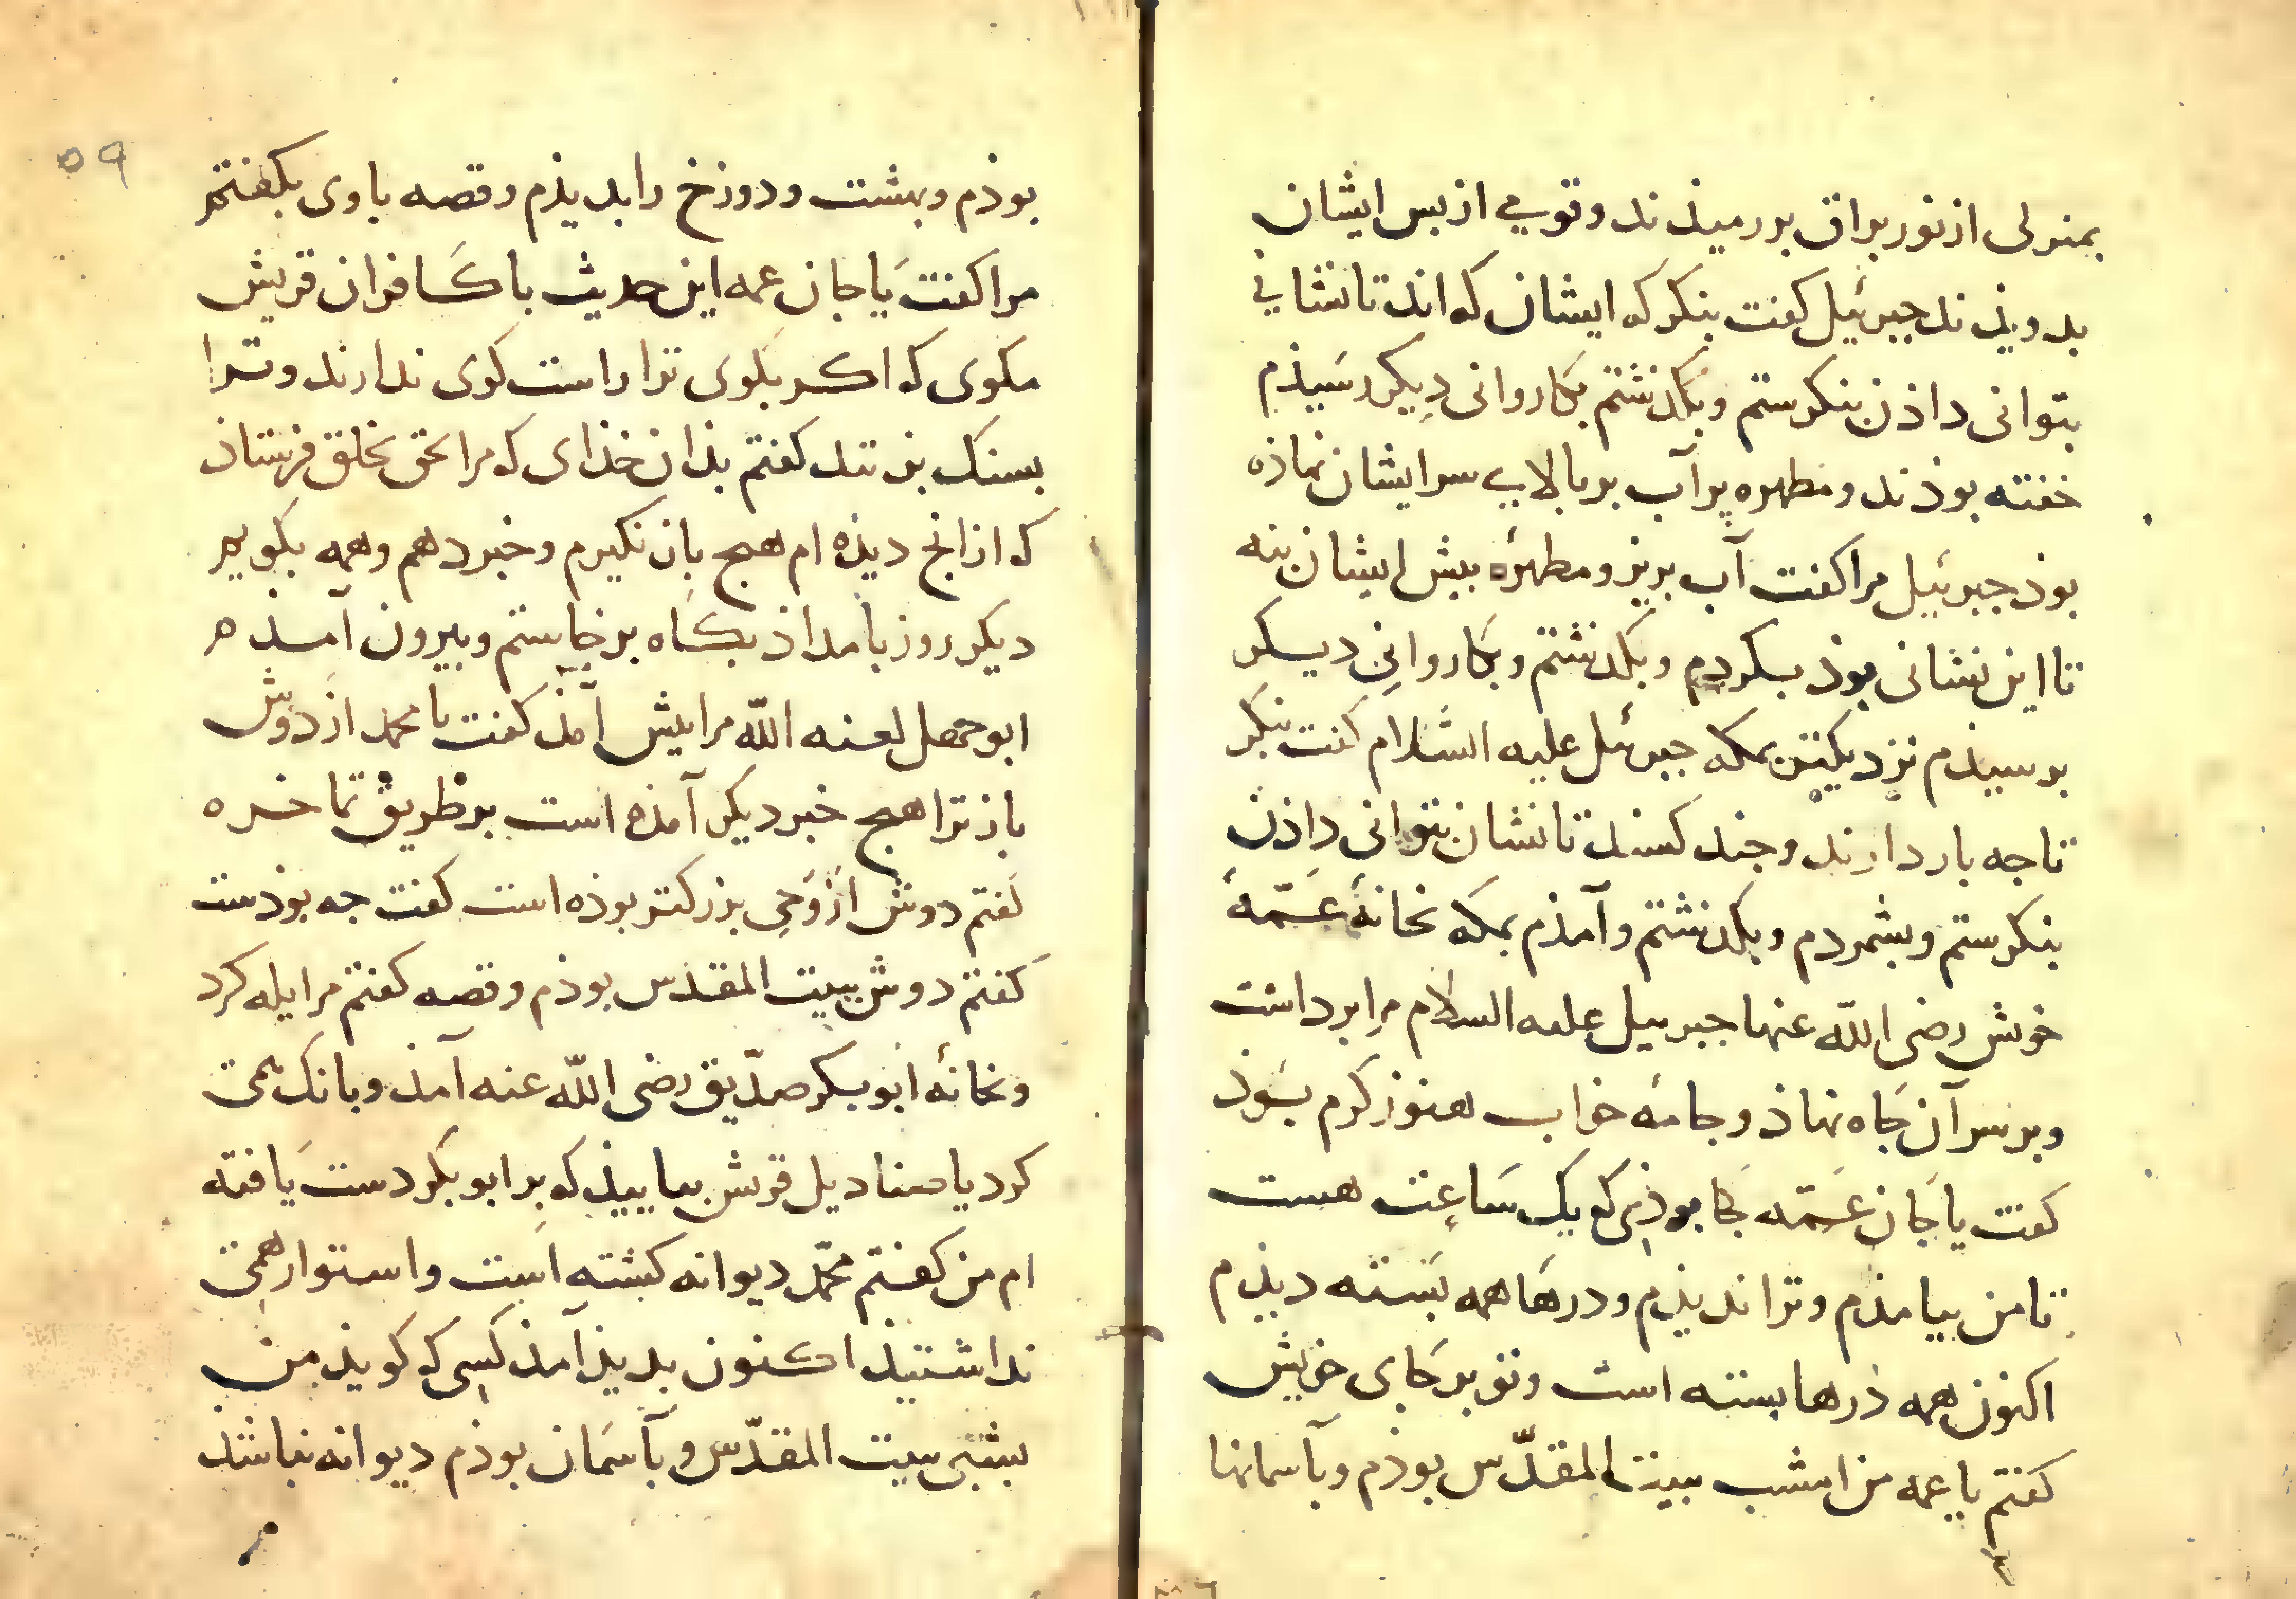 بمنزلی از نور براق بررمیذند و قومی از بس ایشان
بدویذند جبرئیل کفت بنکر که ایشان که اند تا نشانی
بتوانی داذن بنکرستم و بکذشتم بکاروانی دیکر رسیذم
خفته بوذند و مطهره پر آب بر بالای سر ایشان نهاذه
بوذ جبرئیل مرا کفت آب بریز و مطهره بیش ایشان بنه
تا این نشانی بوذ بکردم و بکذشتم و بکاروانی دیکر
برسیذم نزدیکتر بمکه جبرئیل علیه السلام کفت بنکر
تا جه بار دارند و جند کسند تا نشان بتوانی داذن
بنکرستم و بشمردم و بکذشتم و آمذم بمکه بخانهٔ عمّهٔ
خویش رضی الله عنها جبرییل علیه السلام مرا برداشت
و بر سر آن جاه نهاذ و جامهٔ خواب هنوز کرم بوذ
کفت یا جان عمّه کجا بوذی که یک ساعت هست
تا من بیامذم و ترا ندیذم و درها همه بسته دیذم
اکنون همه ذرها بسته است و تو بر جای خویش
کفتم یا عمه من امشب ببیت المقدّس بوذم و بآسمانها
۵۹
بوذم و بهشت و دوزخ را بدیذم و قصه با وی بکفتم
مرا کفت یا جان عمه این حدیث با کافران قریش
مکوی که اکر بکوی ترا راست کوی ندارند و ترا
بسنک بزنند کفتم بذان خذای که مرا بحق بخلق فرستاذ
که از انج دیذه ام هیج باز نکیرم و خبر دهم و همه بکویم
دیکر روز بامداذ بکاه برخاستم و بیرون آمذم
ابوجهل لعنه الله مرا بیش آمذ کفت یا محمد از دوش
باز ترا هیج خبر دیکر آمذه است بر طریق تماخره
کفتم دوش از وحی بزرکتر بوذه است کفت جه بوذست
کفتم دوش ببیت المقدس بوذم و قصه کفتم مرا یله کرد
و بخانهٔ ابوبکر صدّیق رضی الله عنه آمذ و بانک همی
کرد یا صنادیل قریش بیاییذ که بر ابوبکر دست یافته
ام من کفتم محمّد دیوانه کشته است و استوار همی
نداشتیذ اکنون بدیذ آمذ کسی که کویذ من
بشبی ببیت المقدّس و بآسمان بوذم دیوانه نباشذ